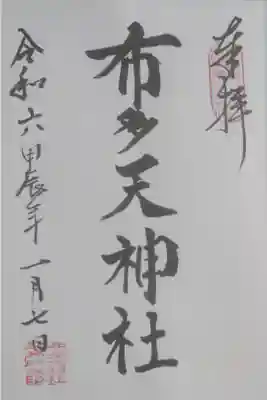 奉拝
布多天神社
令和六甲辰年一月七日